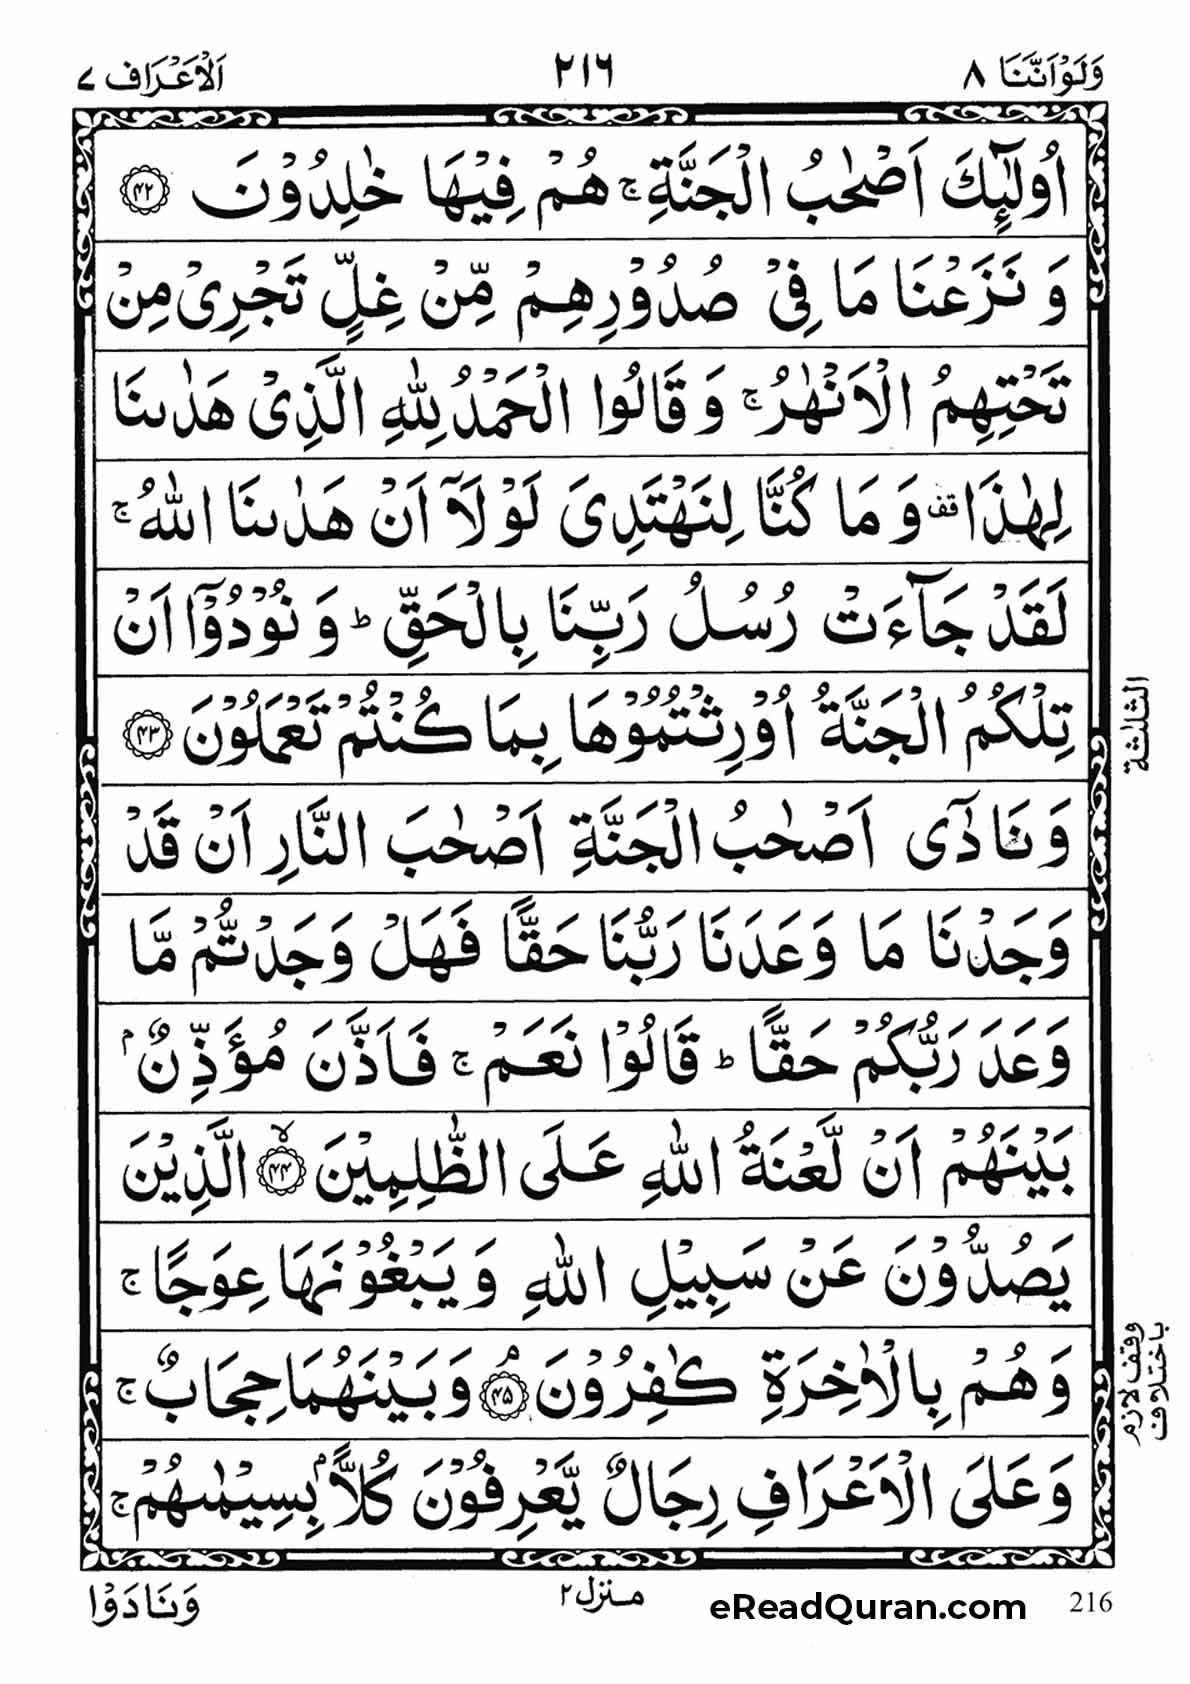 وَلَوْاَنَّنَا ٨
٢١٦
اَلْاَعْرَاف ٧
اُولٰٓئِكَ اَصْحٰبُ الْجَنَّةِ ۚ هُمْ فِيْهَا خٰلِدُوْنَ ﴿٤٢﴾
وَ نَزَعْنَا مَا فِيْ صُدُوْرِهِمْ مِّنْ غِلٍّ تَجْرِيْ مِنْ
تَحْتِهِمُ الْاَنْهٰرُ ۚ وَ قَالُوا الْحَمْدُ لِلّٰهِ الَّذِيْ هَدٰىنَا
لِهٰذَا ۫ وَ مَا كُنَّا لِنَهْتَدِيَ لَوْلَاۤ اَنْ هَدٰىنَا اللّٰهُ ۚ
لَقَدْ جَآءَتْ رُسُلُ رَبِّنَا بِالْحَقِّ ؕ وَ نُوْدُوْۤا اَنْ
تِلْكُمُ الْجَنَّةُ اُوْرِثْتُمُوْهَا بِمَا كُنْتُمْ تَعْمَلُوْنَ ﴿٤٣﴾
الثلثة
وَ نَادٰۤى اَصْحٰبُ الْجَنَّةِ اَصْحٰبَ النَّارِ اَنْ قَدْ
وَجَدْنَا مَا وَعَدَنَا رَبُّنَا حَقًّا فَهَلْ وَجَدْتُّمْ مَّا
وَعَدَ رَبُّكُمْ حَقًّا ؕ قَالُوْا نَعَمْ ۚ فَاَذَّنَ مُؤَذِّنٌۢ
بَيْنَهُمْ اَنْ لَّعْنَةُ اللّٰهِ عَلَى الظّٰلِمِيْنَ ﴿٤٤﴾ۙ الَّذِيْنَ
يَصُدُّوْنَ عَنْ سَبِيْلِ اللّٰهِ وَ يَبْغُوْنَهَا عِوَجًا ۚ
وَهُمْ بِالْاٰخِرَةِ كٰفِرُوْنَ ﴿٤٥﴾ۘ وَبَيْنَهُمَا حِجَابٌ ۚ
وقف لازم
باختلاف
وَعَلَى الْاَعْرَافِ رِجَالٌ يَّعْرِفُوْنَ كُلًّاۢ بِسِيْمٰىهُمْ ۚ
وَنَادَوْا
منزل ٢
eReadQuran.com
216